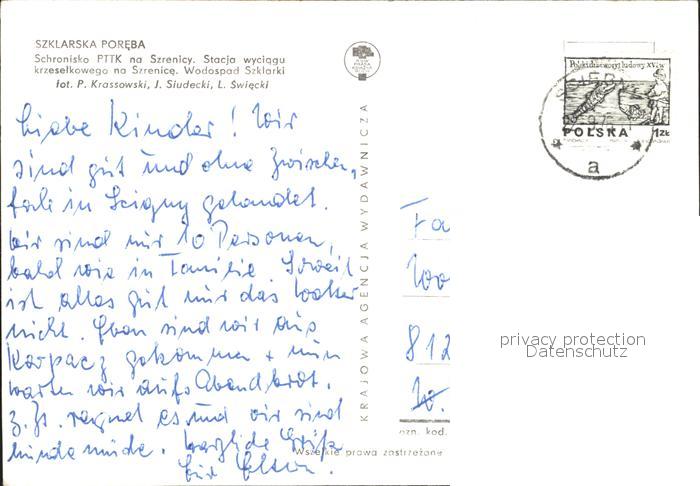 SZKLARSKA PORĘBA
Schronisko PTTK na Szrenicy. Stacja wyciągu
krzesełkowego na Szrenicę. Wodospad Szklarki
fot. P. Krassowski, J. Siudecki, L. Święcki
Liebe Kinder! Wir
sind gut und ohne Zwischen-
fälle in Scigny gelandet.
Wir sind nur 10 Personen,
bald wie in Familie. Soweit
ist alles gut nur das Wetter
nicht. Eben sind wir aus
Karpacz gekommen + nun
warten wir aufs Abendbrot.
z. Zt. regnet es und wir sind
hundemüde. Herzliche Grüße
Eure Eltern.
KRAJOWA AGENCJA WYDAWNICZA
POLSKA 1 ZŁ
a
Fa
812
ozn. kod.
Wszelkie prawa zastrzeżone
privacy protection
Datenschutz